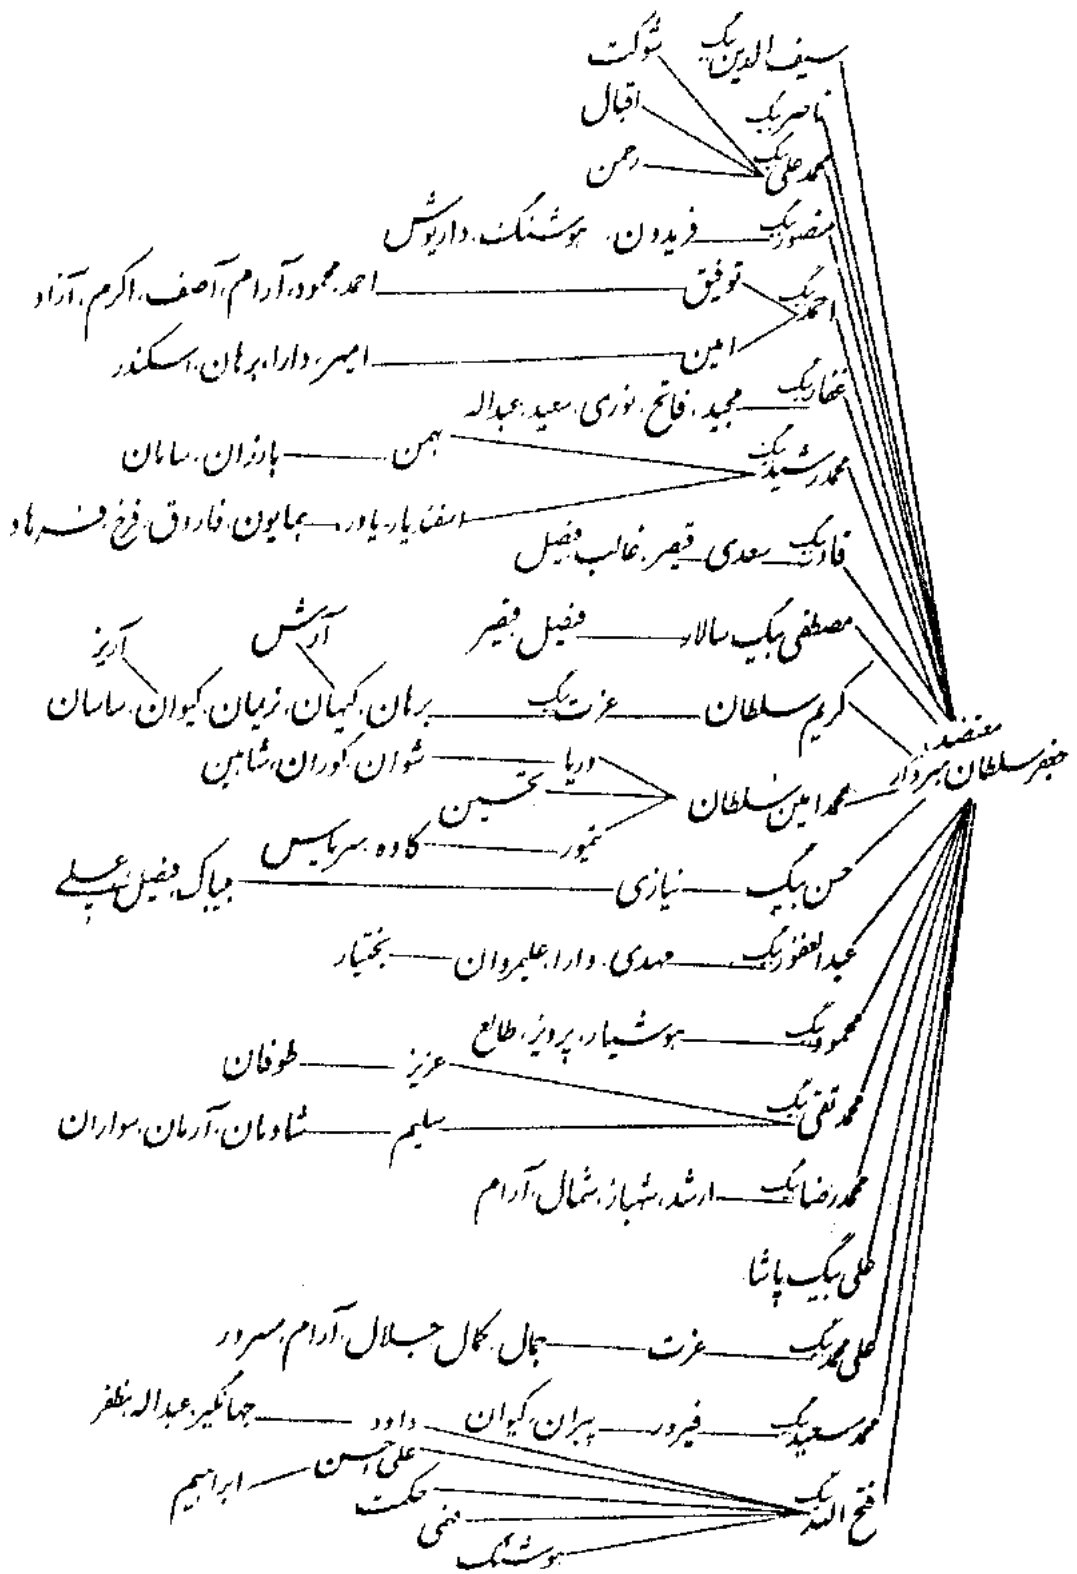 سیف الدین بیگ شوکت
ناصر بیگ اقبال
محمد علی بیگ رحمن
منصور بیگ فریدون، هوشنگ، داریوش
احمد بیگ توفیق احمد، محمود، آرام، آصف، اکرم، آزاد
امین امیر، دارا، برهان، اسکندر
غفار بیگ مجید، فاتح، نوری، سعید، عبداله
محمد رشید بیگ بهمن بارزان، سامان
اسفندیار، یاور، همایون، فاروق، فرخ، فرهاد
قادر بیگ سعدی قیصر، غالب، فیصل
مصطفی بیگ سالار فیصل، قیصر
آرش آریز
کریم سلطان عزت بیگ برهان، کیهان، نریمان، کیوان، ساسان
معتضد،
جعفر سلطان سردار
دریا شوان، گوران، شاهین
محمد امین سلطان تحسین
تیمور کاوه، سریاس
حسن بیگ نیازی بیباک، فیصل، علی
عبدالغفور بیگ مهدی، دارا، علیمروان بختیار
محمود بیگ هوشیار، پرویز، طالع
محمد تقی بیگ عزیز طوفان
سلیم شادمان، آرمان، سواران
محمد رضا بیگ ارشد، شهباز، شمال، آرام
علی بیگ پاشا
علی محمد بیگ عزت جمال، کمال، جلال، آرام، مسرور
محمد سعید بیگ فیروز پیران، کیوان
داود جهانگیر، عبداله، مظفر
فتح الله بیگ علی حسن ابراهیم
حکمت
فهمی
هوشنگ